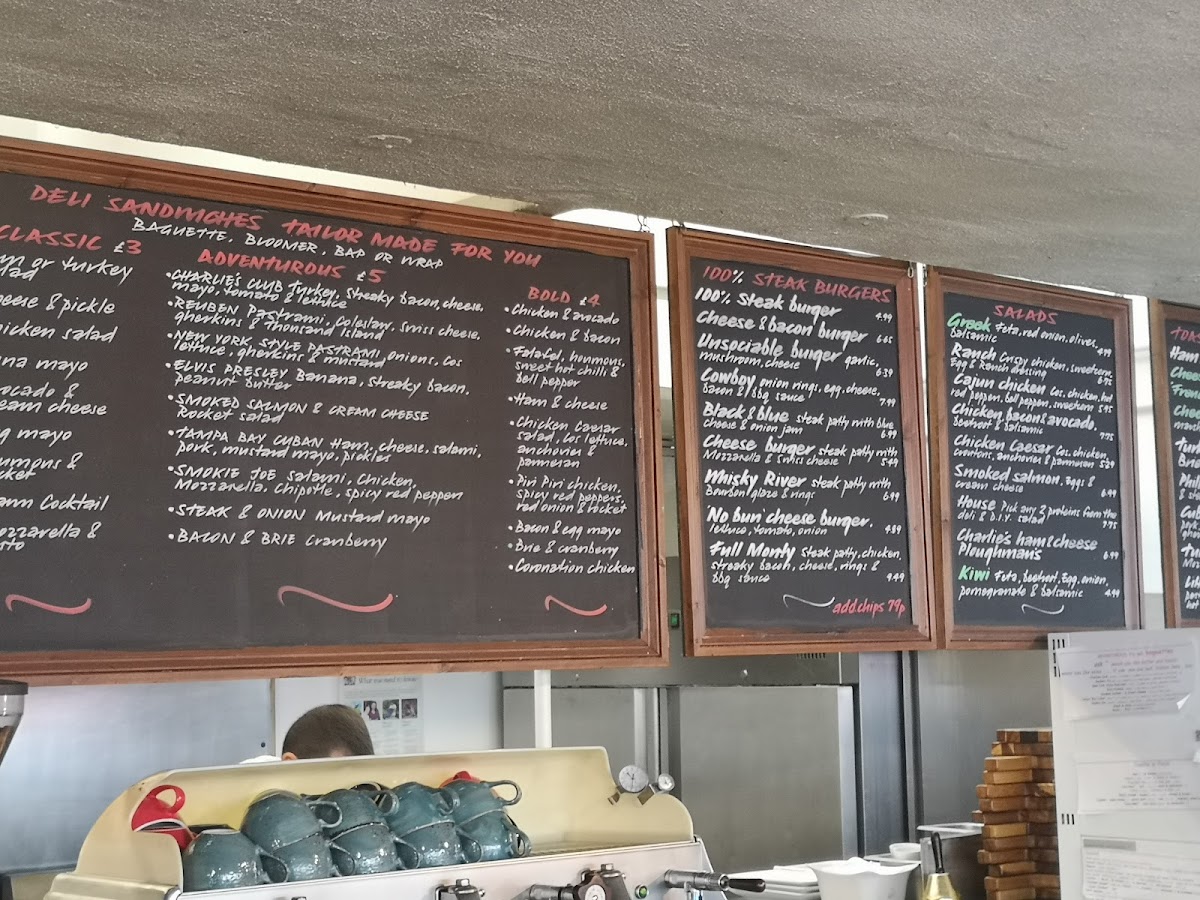 DELI SANDWICHES TAILOR MADE FOR YOU
BAGUETTE, BLOOMER, BAP OR WRAP
CLASSIC £3
or turkey
& pickle
salad
mayo
&
cheese
mayo
&
Cocktail
&
ADVENTUROUS £5
•CHARLIE'S CLUB turkey, streaky bacon, cheese,
mayo, tomato & lettuce
•REUBEN Pastrami, Coleslaw, Swiss cheese,
gherkins & thousand Island
•NEW YORK STYLE PASTRAMI onions, Cos
lettuce, gherkins & mustard
•ELVIS PRESLEY Banana, streaky bacon,
peanut butter
•SMOKED SALMON & CREAM CHEESE
Rocket salad
•TAMPA BAY CUBAN Ham, cheese, salami,
pork, mustard mayo, pickles
•SMOKIE JOE Salami, Chicken,
Mozzarella, Chipotle, spicy red pepper
•STEAK & ONION Mustard mayo
•BACON & BRIE Cranberry
BOLD £4
•Chicken & avocado
•Chicken & bacon
•Falafel, houmous,
sweet hot chilli &
bell pepper
•Ham & cheese
•Chicken Caesar
salad, Cos lettuce,
anchovies &
parmesan
•Piri Piri chicken,
spicy red peppers,
red onion & rocket
•Bacon & egg mayo
•Brie & cranberry
•Coronation chicken
100% STEAK BURGERS
100% Steak burger 4.99
Cheese & bacon burger 6.65
Unsociable burger garlic,
mushroom, cheese 6.39
Cowboy onion rings, egg, cheese,
bacon & bbq sauce 7.99
Black & blue steak patty with blue
cheese & onion jam 6.99
Cheese burger steak patty with
Mozzarella & Swiss cheese 5.49
Whisky River steak patty with
Bourbon glaze & rings 6.99
'No bun' cheese burger.
lettuce, tomato, onion 4.89
Full Monty steak patty, chicken,
streaky bacon, cheese, rings &
bbq sauce 9.49
add chips 79p
SALADS
Greek Feta, red onion, olives,
balsamic 4.99
Ranch Crispy chicken, sweetcorn,
Egg & Ranch dressing 6.75
Cajun chicken Cos, chicken, hot
red pepper, bell pepper, sweetcorn 5.95
Chicken, bacon & avocado,
Beetroot & balsamic 7.75
Chicken Caesar Cos, chicken,
croutons, anchovies & parmesan 5.29
Smoked salmon, Eggs &
cream cheese 6.99
House Pick any 2 proteins from the
deli & D.I.Y. salad 7.75
Charlie's ham & cheese
Ploughman's 6.99
Kiwi Feta, beetroot, Egg, onion,
pomegranate & balsamic 4.99
Ham